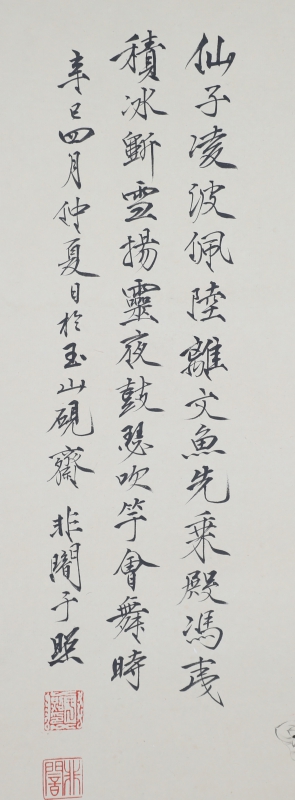 仙子凌波佩陸離文魚先乘殿馮夷
積冰斲雪揚靈夜鼓瑟吹竽會舞時
辛巳四月仲夏日於玉山硯齋非闇于照
非闇